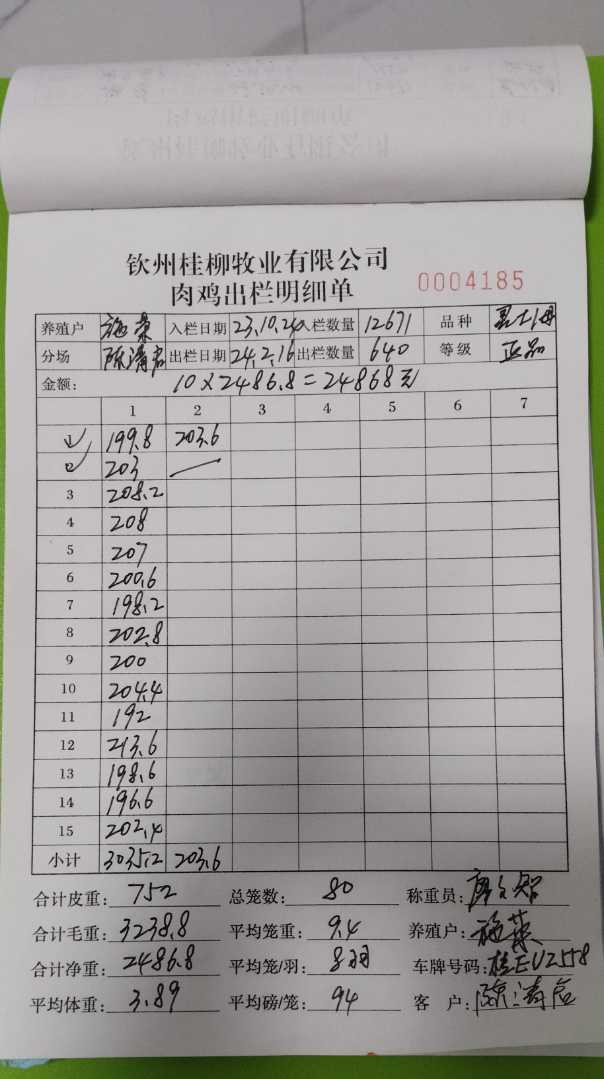 钦州桂柳牧业有限公司
肉鸡出栏明细单
0004185
养殖户 施棻 入栏日期 23.10.24 入栏数量 12671 品种
分场 陈涛启 出栏日期 24.2.16 出栏数量 640 等级 正品
金额: 10×2486.8=24868元
1 2 3 4 5 6 7
199.8 203.6
203
3 208.2
4 208
5 207
6 200.6
7 198.2
8 202.8
9 200
10 204.4
11 192
12 213.6
13 198.6
14 196.6
15 202.4
小计 3035.2 203.6
合计皮重: 752 总笼数: 80 称重员:
合计毛重: 3238.8 平均笼重: 9.4 养殖户: 施棻
合计净重: 2486.8 平均笼/羽: 8羽 车牌号码: 桂EUZ558
平均体重: 3.89 平均磅/笼: 94 客户: 陈涛启